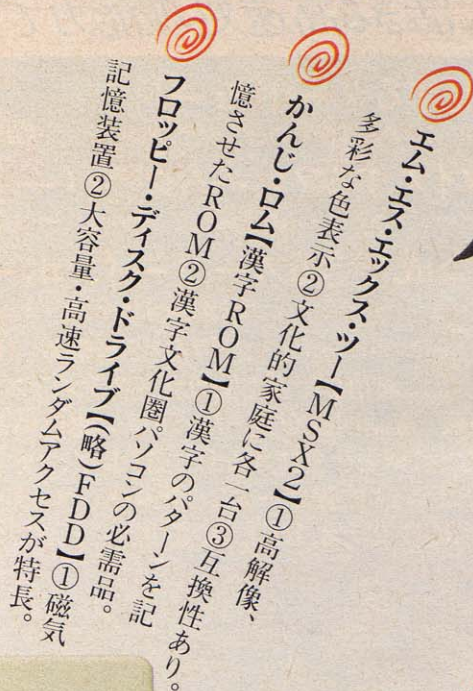 エム・エス・エックス・ツー【MSX2】①高解像、
多彩な色表示②文化的家庭に各一台③互換性あり。
かんじ・ロム【漢字ROM】①漢字のパターンを記
憶させたROM②漢字文化圏パソコンの必需品。
フロッピー・ディスク・ドライブ【(略)FDD】①磁気
記憶装置②大容量・高速ランダムアクセスが特長。